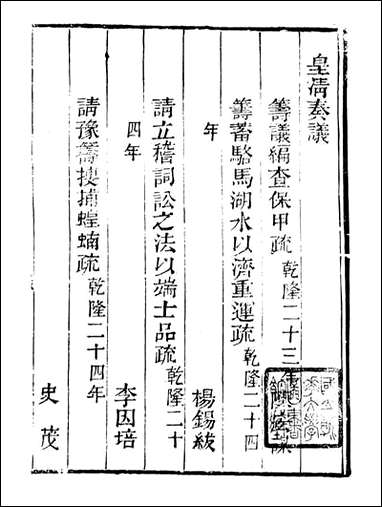 皇清奏議
籌議編查保甲疏乾隆二十三年
籌蓄駱馬湖水以濟重運疏乾隆二十四
年 楊錫紱
請立稽詞訟之法以端士品疏乾隆二十
四年 李因培
請豫籌搜捕蝗蝻疏乾隆二十四年
史茂